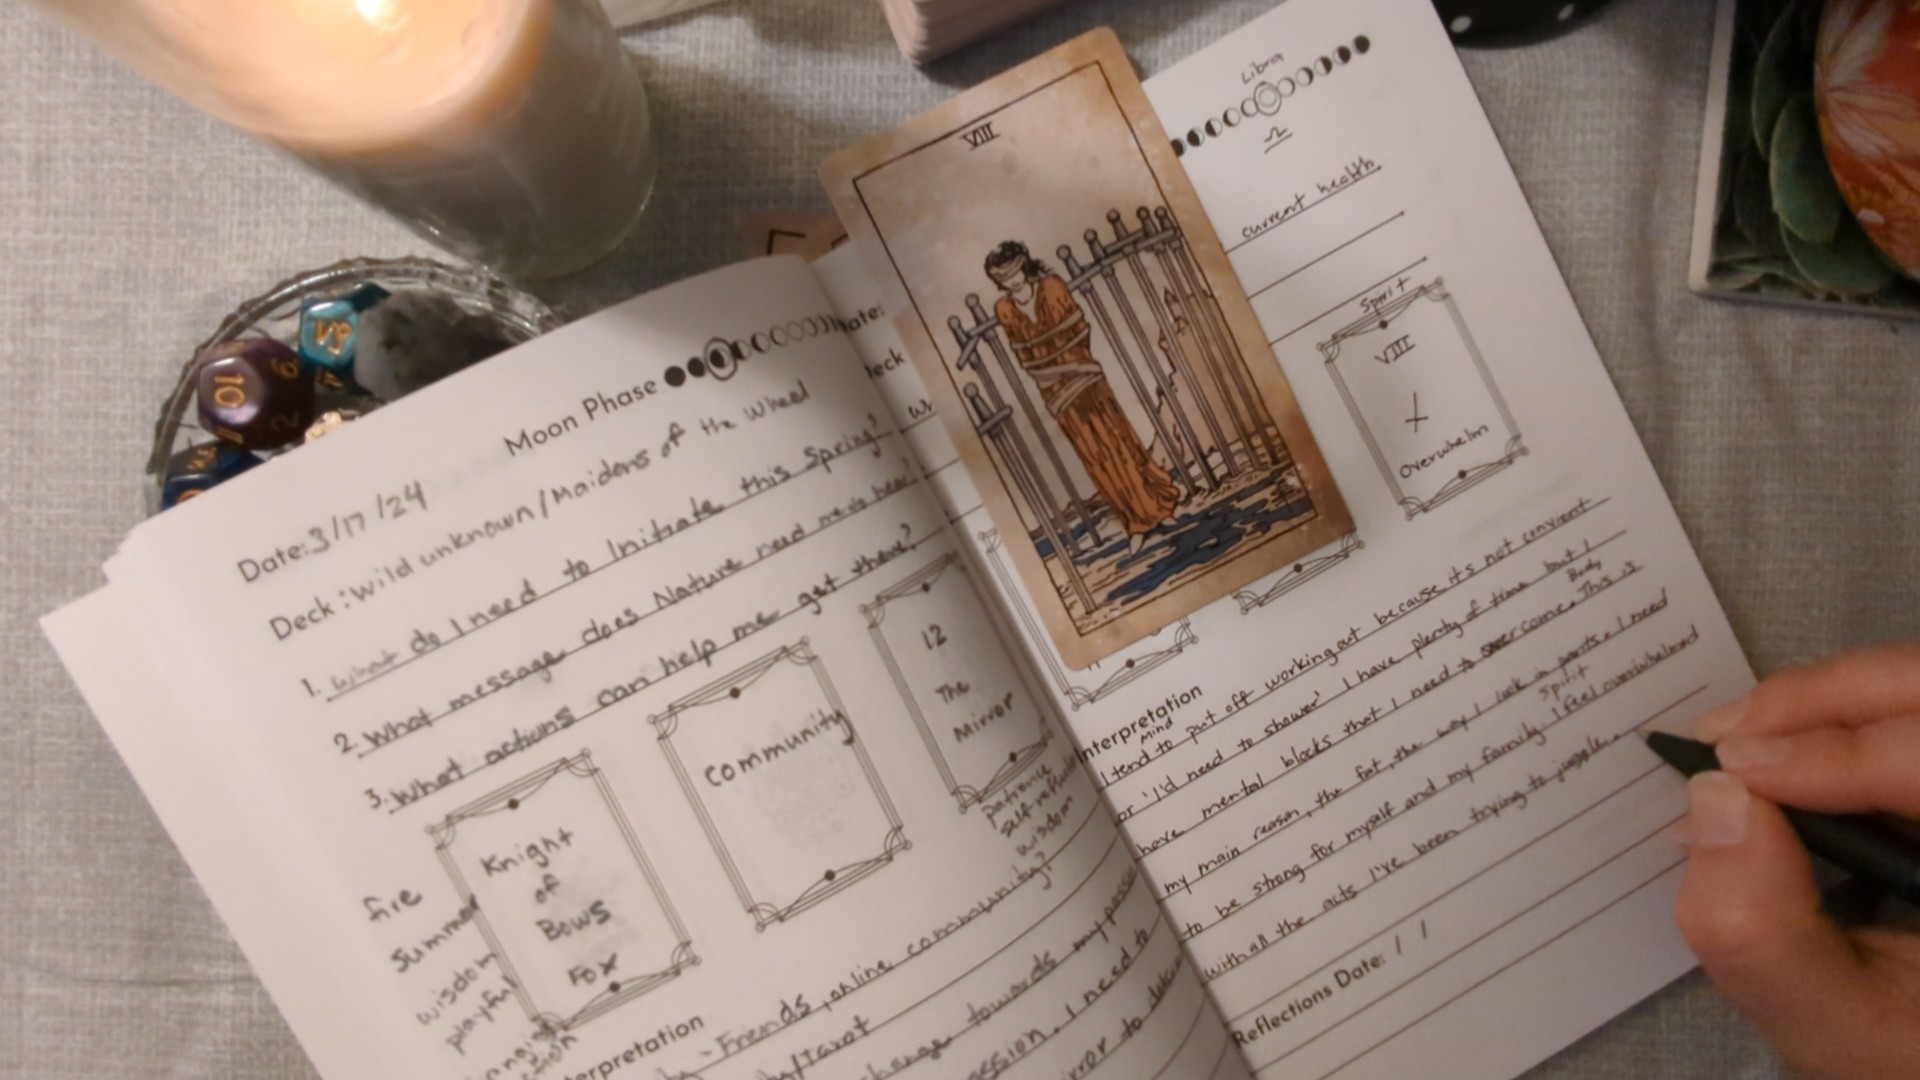 Date: 3/17/24 Moon Phase
Deck: Wild unknown/Maidens of the Wheel
1. What do I need to Initiate this Spring?
2. What message does Nature need me to hear?
3. What actions can help me get there?
Knight
of
Bows
Fox
fire
summer
wisdom
playful
Community
12
The
Mirror
patience
wisdom
- Friends, online community?
/Tarot
change towards my
ession. I need to
rror to
VIII
Libra
♎
current health.
Spirit
VIII
Overwhelm
Interpretation
Mind
I tend to put off working out because it's not convient
or 'I'd need to shower' I have plenty of time but I
Body
have mental blocks that I need to overcome. This is
my main reason, the fat, the way I look in pants. I need
Spirit
to be strong for myself and my family. I feel overwhelmed
with all the acts I've been trying to juggle.
Reflections Date: / /
10